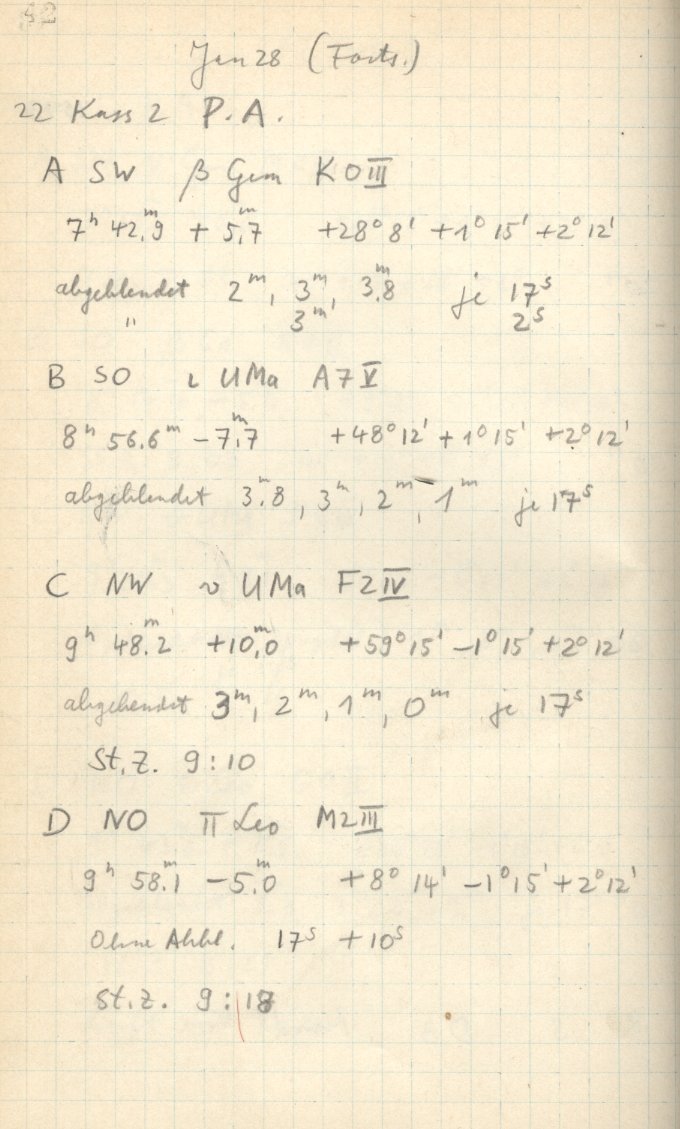 42
Jan 28 (Forts.)
22 Kass 2 P.A.
A SW β Gem K0III
7ʰ 42,ᵐ9 + 5,ᵐ7 +28° 8' +1° 15' +2° 12'
abgeblendet 2ᵐ, 3ᵐ, 3,ᵐ8 je 17ˢ
" 3ᵐ 2ˢ
B SO ι UMa A7V
8ʰ 56.6ᵐ −7,ᵐ7 +48° 12' +1° 15' +2° 12'
abgeblendet 3.ᵐ8, 3ᵐ, 2ᵐ, 1ᵐ je 17ˢ
C NW υ UMa F2IV
9ʰ 48.ᵐ2 +10,ᵐ0 +59° 15' −1° 15' +2° 12'
abgebendet 3ᵐ, 2ᵐ, 1ᵐ, 0ᵐ je 17ˢ
St.Z. 9:10
D NO π Leo M2III
9ʰ 58.ᵐ1 −5.ᵐ0 +8° 14' −1° 15' +2° 12'
Ohne Abbl. 17ˢ +10ˢ
St.Z. 9:18